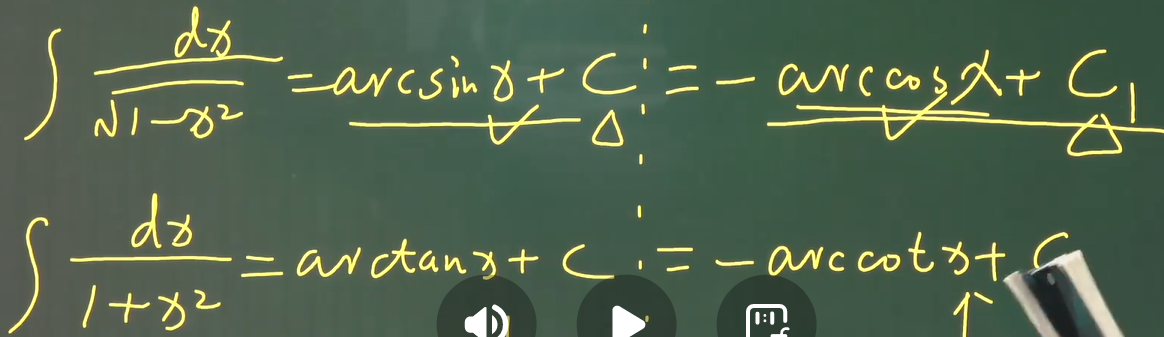 ∫ dx/√(1-x²) = arcsin x + C = - arccos x + C₁
∫ dx/(1+x²) = arctan x + C = - arccot x + C